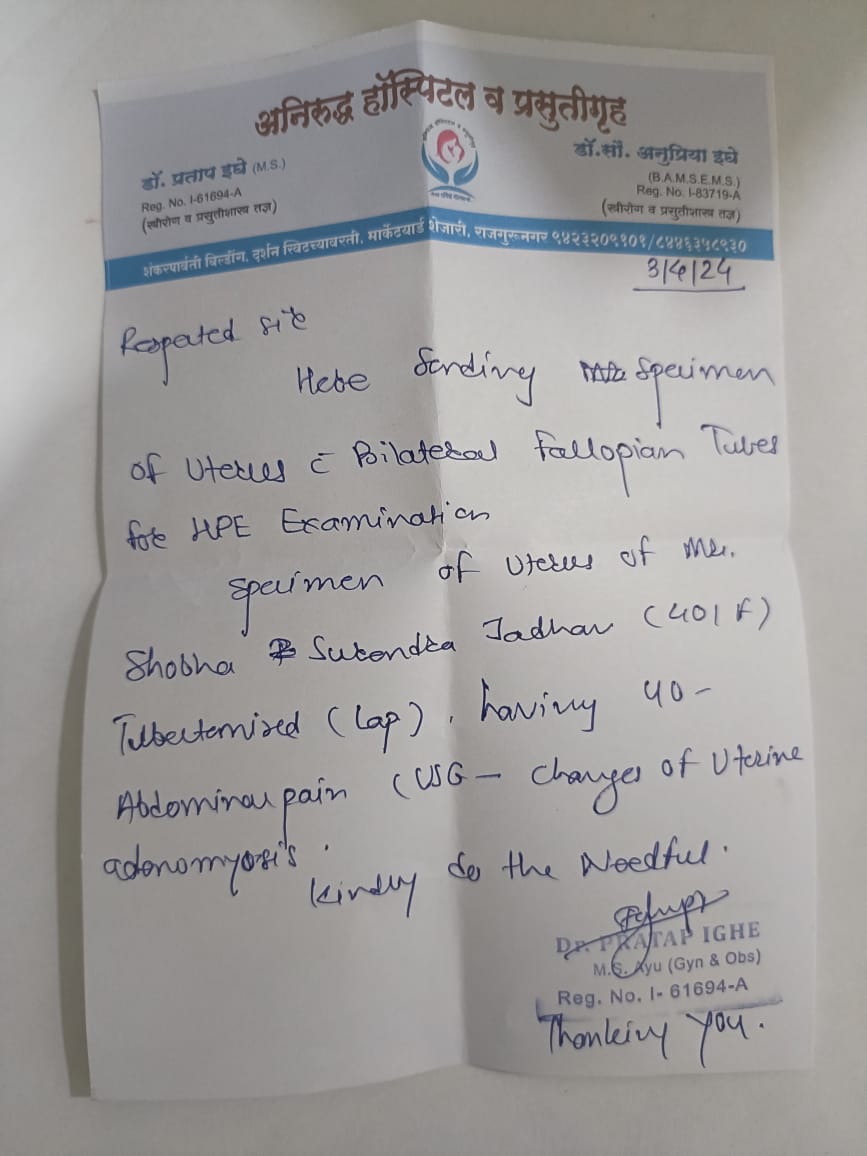 अनिरुद्ध हॉस्पिटल व प्रसुतीगृह
डॉ. प्रताप इघे (M.S.)
Reg. No. I-61694-A
(स्त्रीरोग व प्रसुतीशास्त्र तज्ञ)
डॉ.सौ. अनुप्रिया इघे
(B.A.M.S.E.M.S.)
Reg. No. I-83719-A
(स्त्रीरोग व प्रसुतीशास्त्र तज्ञ)
शंकरपार्वती बिल्डींग, दर्शन स्विटच्यावरती, मार्केटयार्ड शेजारी, राजगुरूनगर ९४२३२०९१०१/८४४६३५८९३०
3/4/24
Respected Sir
Here Sending Specimen
of Uterus c̄ Bilateral Fallopian Tubes
for HPE Examination
Specimen of Uterus of Mrs.
Shobha Surendra Jadhav (40/F)
Tubectomised (Lap), having
Abdominal pain (USG - changes of Uterine
adenomyosis.
Kindly do the Needful.
Dr. PRATAP IGHE
M.S. Ayu (Gyn & Obs)
Reg. No. I- 61694-A
Thanking You.